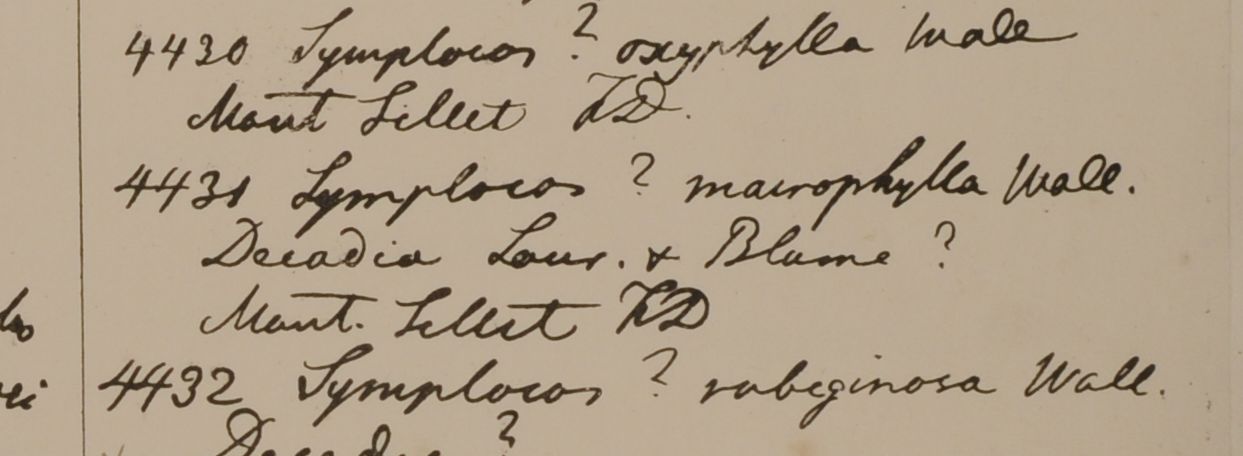 4430 Symplocos ? oxyphylla Wall
Mont Sillet FD.
4431 Symplocos ? macrophylla Wall.
Decadia Lour. & Blume ?
Mont. Sillet FD
4432 Symplocos ? rubiginosa Wall.
Decadia ?